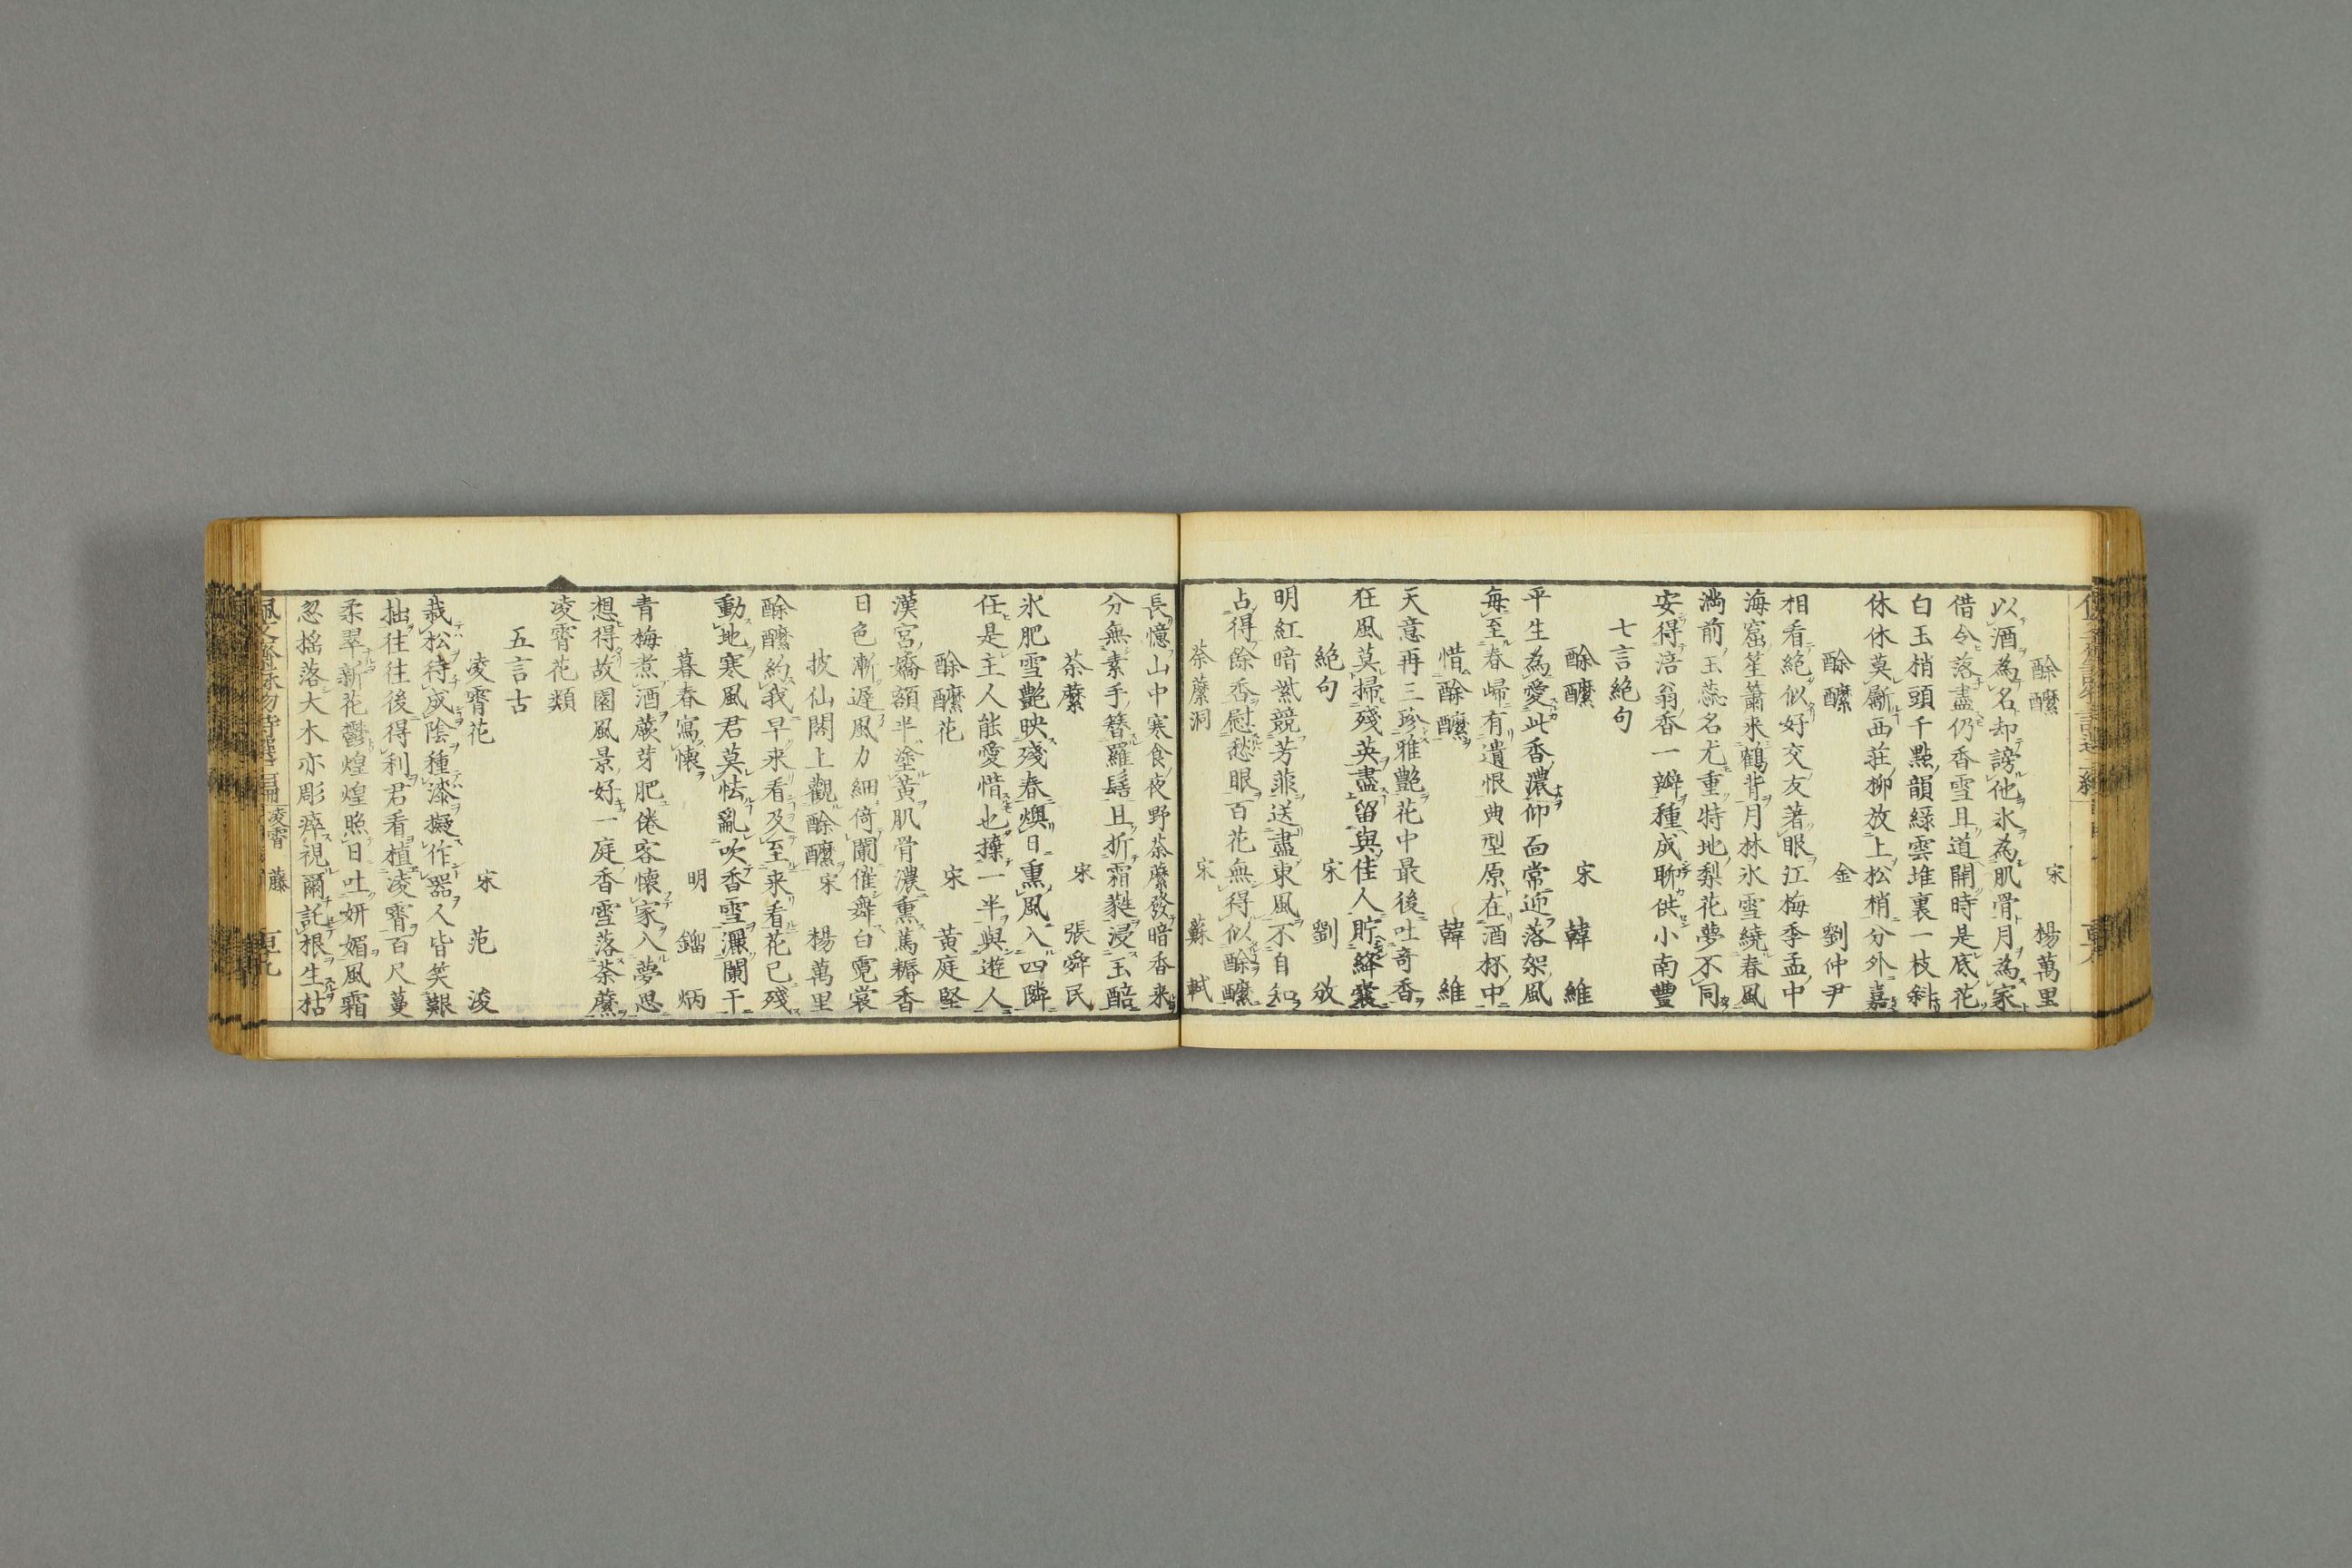 酴醿　宋　楊萬里
以酒為名却謗他氷為肌骨月為家
借令落盡仍香雪且道開時是底花
白玉梢頭千點韻綠雲堆裏一枝斜
休休莫劚西莊柳放上松梢分外嘉
酴醿　金　劉仲尹
相看絶似好交友著眼江梅季孟中
海窟笙簫来鶴背月林氷雪繞春風
満前玉蕊名尤重特地梨花夢不同
安得涪翁香一瓣種成聊供小南豐
七言絶句
酴醿　宋　韓維
平生為愛此香濃仰面常迎落架風
每至春歸有遺恨典型原在酒杯中
惜酴醿　韓維
天意再三珍雅艶花中最後吐奇香
狂風莫掃殘英盡留與佳人貯絳囊
絶句　宋　劉敞
明紅暗紫競芳菲送盡東風不自知
占得餘香慰愁眼百花無得似酴醿
荼蘼洞　宋　蘇軾
長憶山中寒食夜野荼蘼發暗香来
分無素手簪羅髻且折霜蕤浸玉醅
荼蘼　宋　張舜民
氷肥雪艶映殘春燠日熏風入四隣
任是主人能愛惜也拚一半與遊人
酴醿花　宋　黄庭堅
漢宮嬌額半塗黄肌骨濃熏篤耨香
日色漸遲風力細倚闌催舞白霓裳
披仙閣上觀酴醿　宋　楊萬里
酴醿約我早来看及至来看花已殘
動地寒風君莫怯亂吹香雪灑闌干
暮春寫懐　明　鎦炳
青梅煮酒蕨芽肥倦客懐家入夢思
想得故園風景好一庭香雪落荼蘼
凌霄花類
五言古
凌霄花　宋　范浚
栽松待成陰種漆擬作器人皆笑艱
拙往往後得利君看植凌霄百尺蔓
柔翠新花鬱煌煌照日吐妍媚風霜
忽揺落大木亦彫瘁視爾託根生枯
佩文齋詠物詩選　凌霄　藤